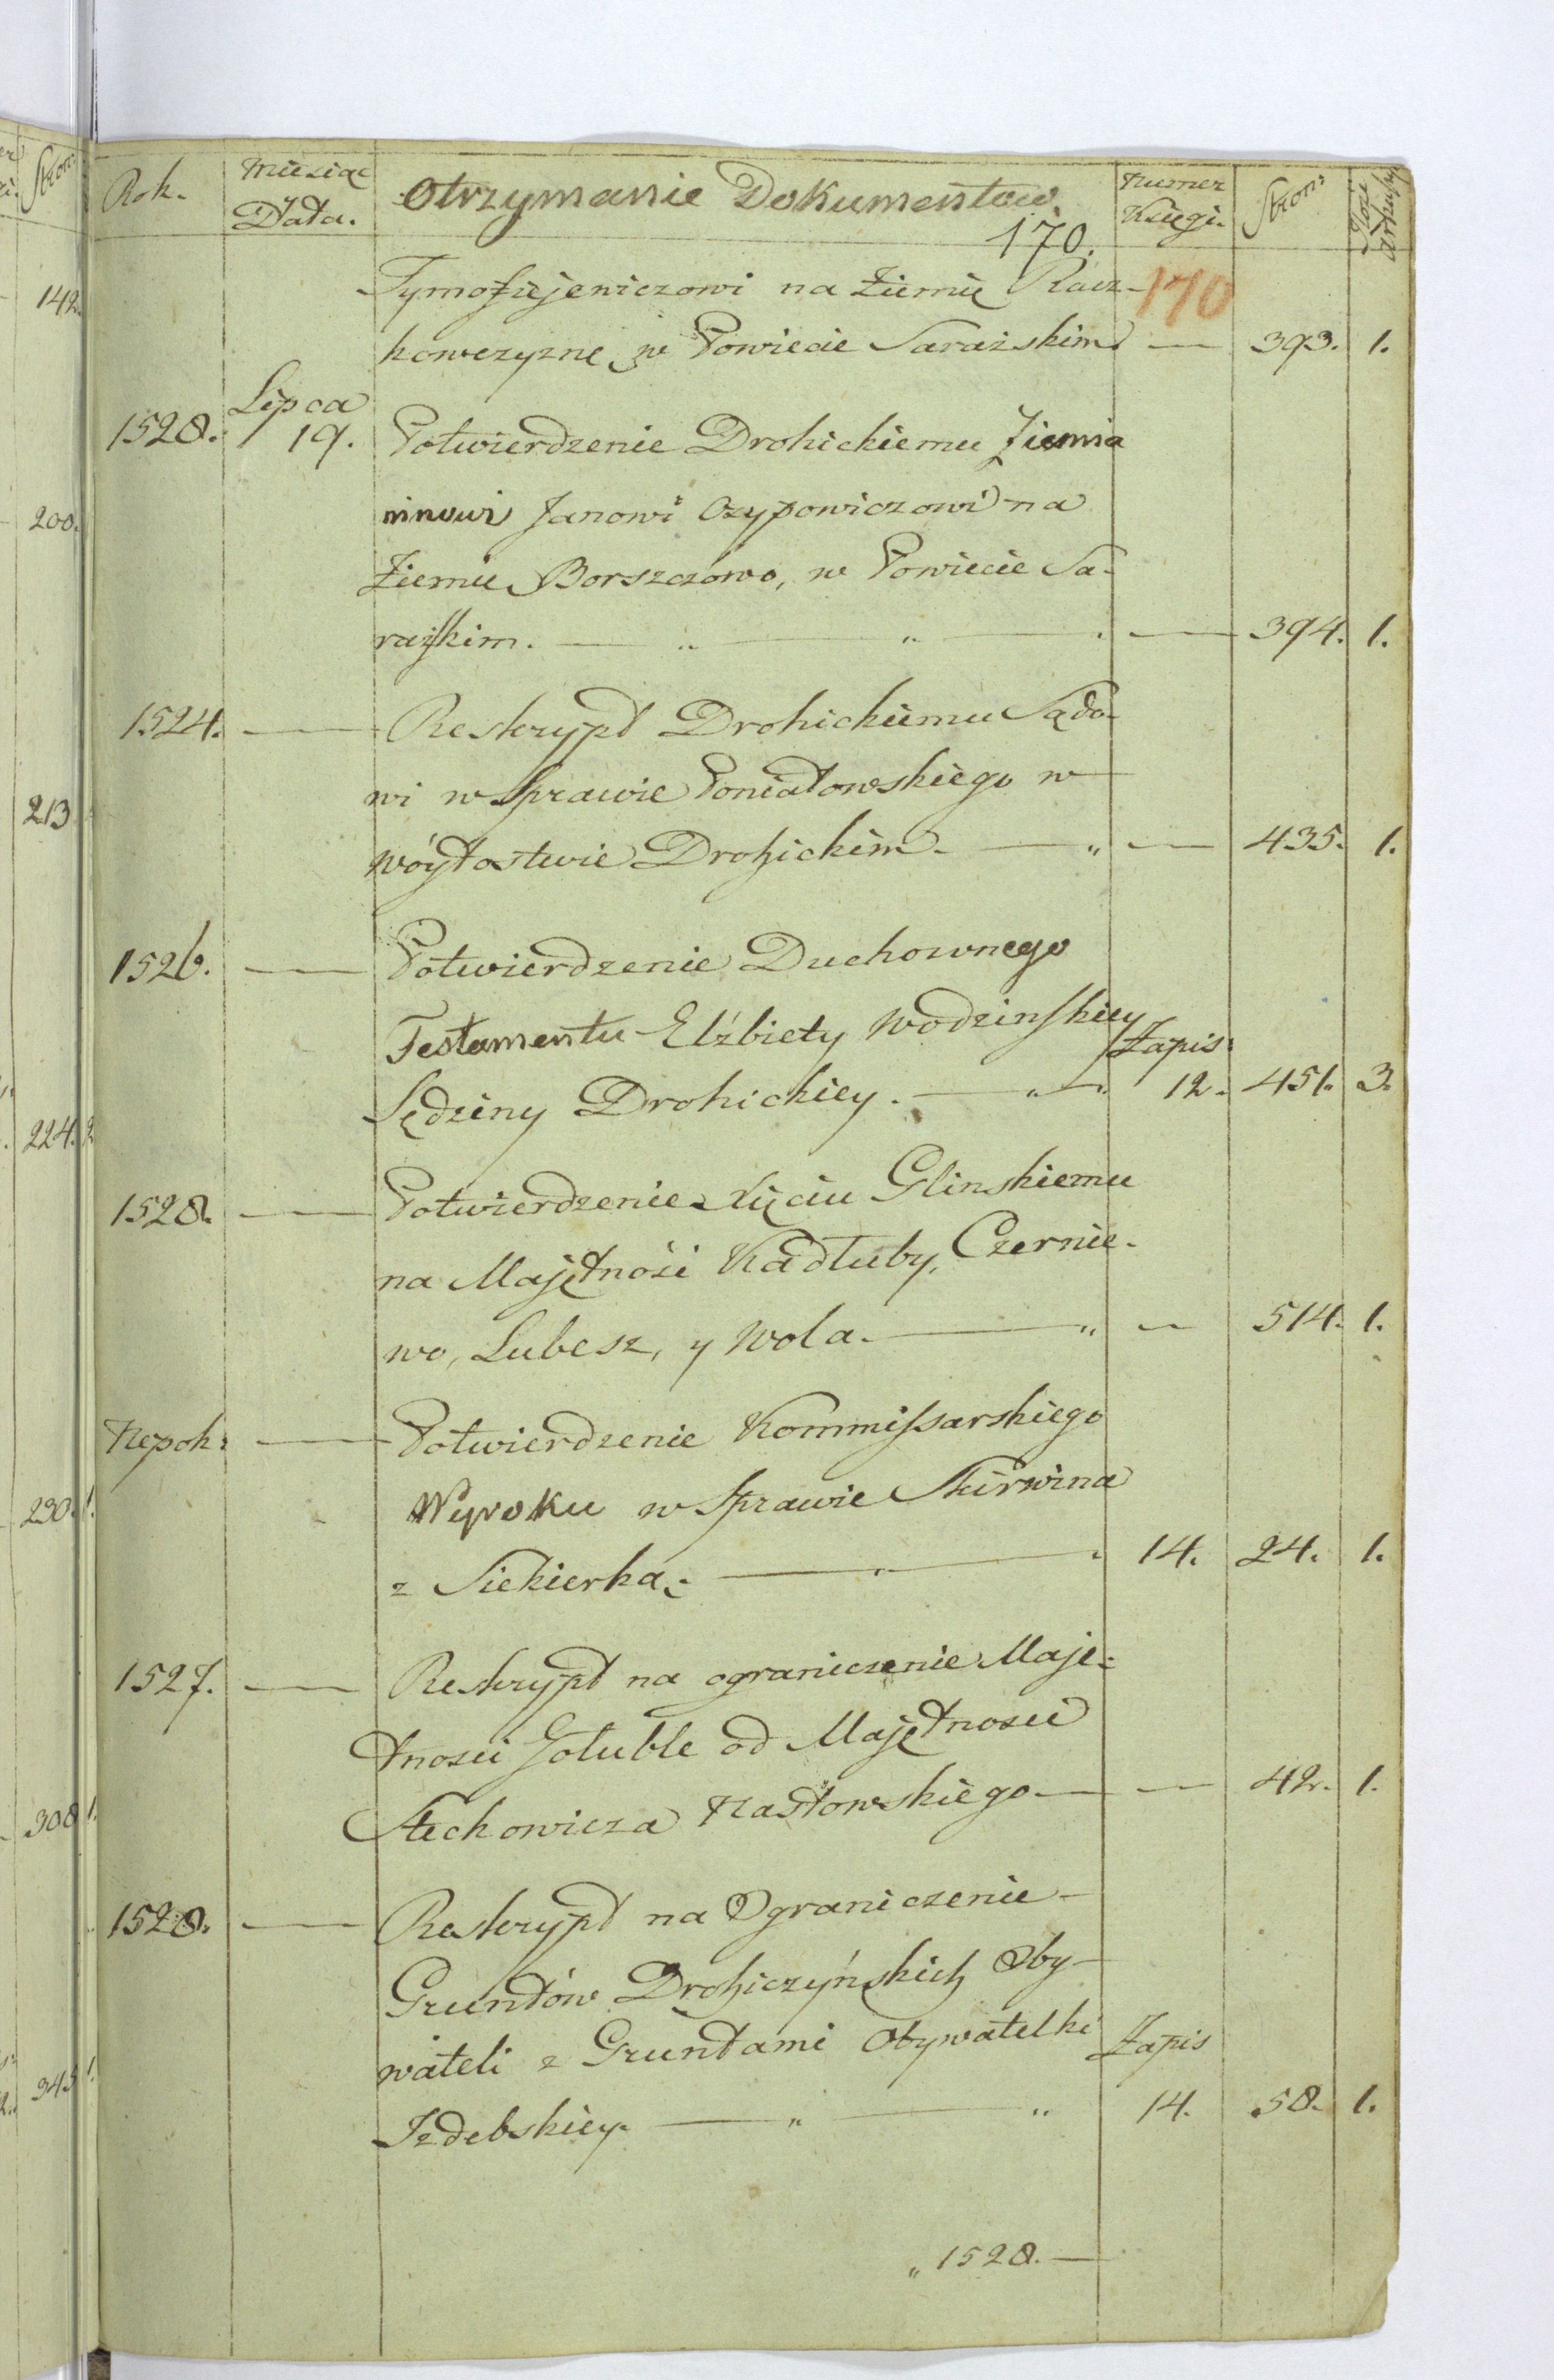 Rok.
Miesiąc
Data.
Otrzymanie Dokumentow
Numer
Księgi.
Stron:
170.
170
Tymofiejewiczowi na Ziemię Racz-
kowczyznę w Powiecie Saraiskim — 393. 1.
Lipca
1528. 19. Potwierdzenie Drohickiemu Ziemia
ninowi Janowi Ozypowiczowi na
Ziemie Borszczówo, w Powiecie Sa-
raiskim. — " — " — 394. 1.
1524. — Reskrypt Drohickiemu Sądo-
wi w Sprawie Poniatowskiego w
wóytostwie Drohickim. — " — 435. 1.
1526. — Potwierdzenie Duchownego
Testamentu Elżbiety Wodzinskiey
Zapis:
Sędziny Drohickiey. — " — " 12. 451. 3.
1528. — Potwierdzenie Xięciu Glinskiemu
na Majętnośi Kadłuby, Czernie-
wo, Lubesz, y Wola. — " — 514. 1.
Nepok: — Potwierdzenie Kommissarskiego
Wyroku w Sprawie Skirwina
z Siekierką. — " — 14. 24. 1.
1527. — Reskrypt na ograniczenie Maję-
tnosci Hołuble od Majętnosci
Stechowicza Nastowskiego — — 42. 1.
1528. — Reskrypt na Ograniczenie —
Gruntów Drohiczyńskich Oby-
wateli z Gruntami Obywatelki
Zapis
Izdebskiey. — " — " 14. 58. 1.
" 1528. —
142.
200.
213
224. 2
230. 1.
308 1.
345 1.